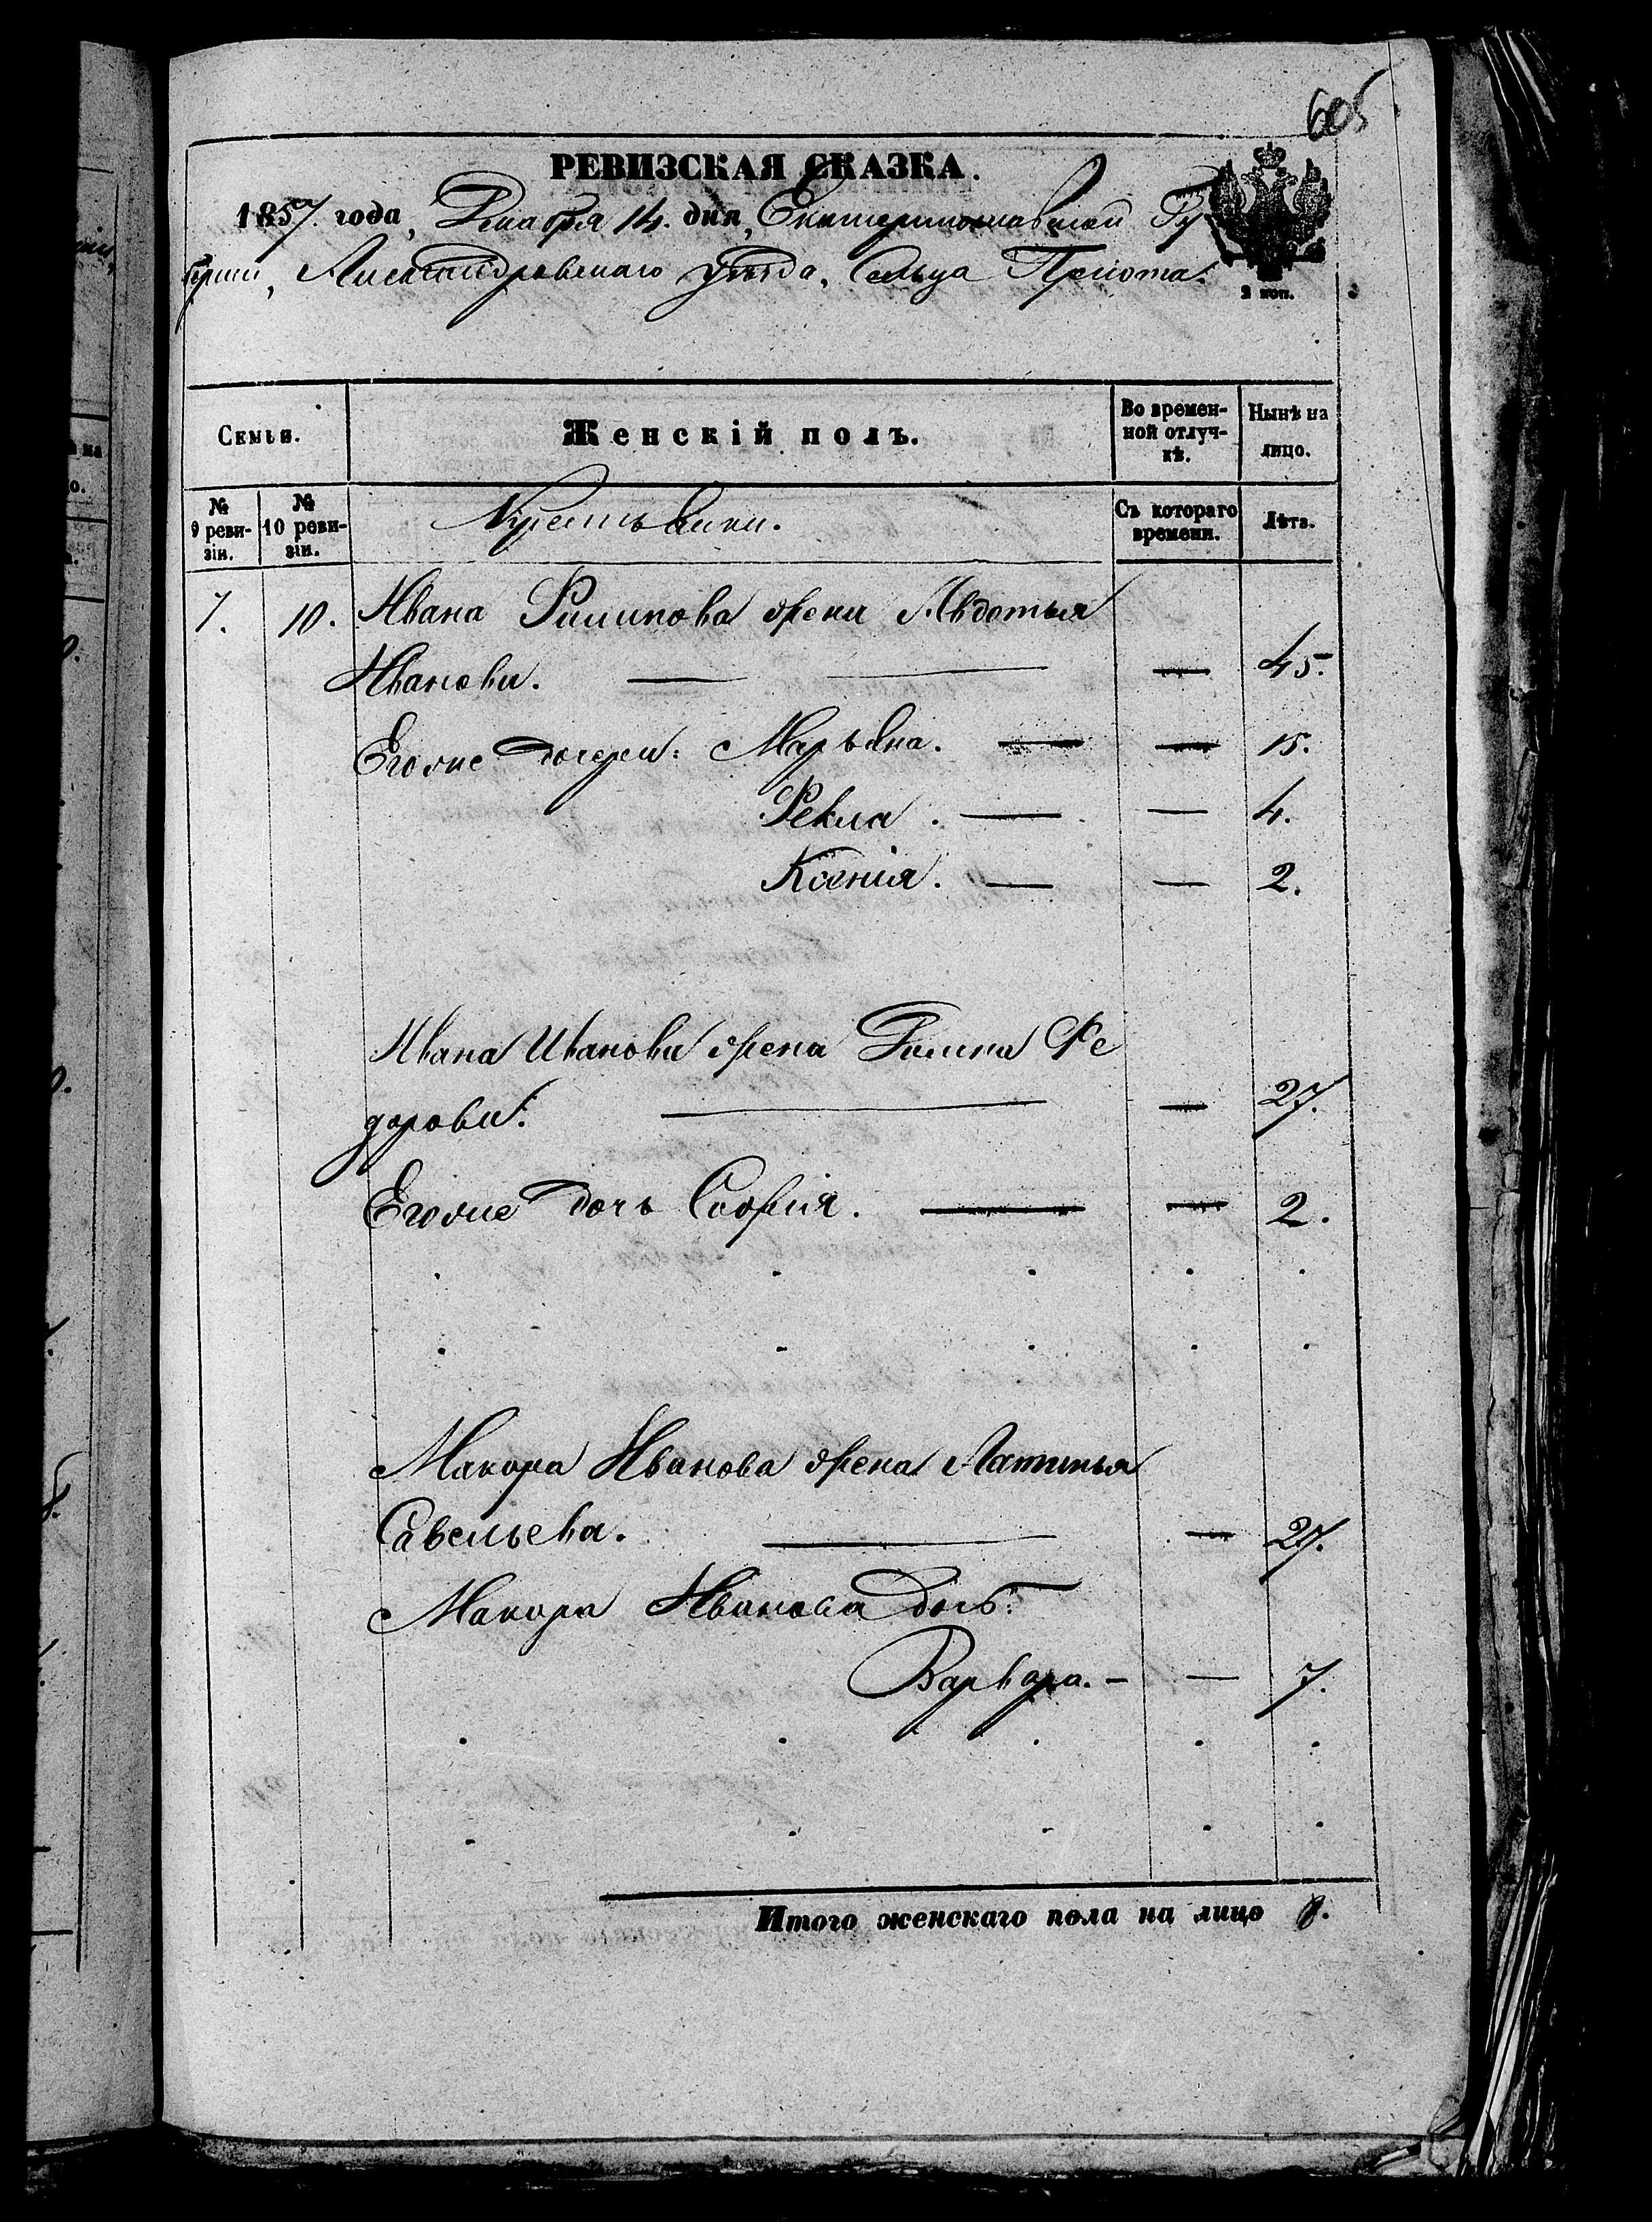 605
РЕВИЗСКАЯ СКАЗКА.
1857. года, Декабря 14. дня, Екатеринославской Гу
берніи, Александровскаго уѣзда, Сельца Пріюта.
2 коп.
Семьи.
Женскій полъ.
Во времен-
ной отлуч-
кѣ.
Нынѣ на
лицо.
№
9 реви-
зіи.
№
10 реви-
зіи.
Крестьянки.
Съ котораго
времени.
Лѣта.
7. 10. Ивана жена Авдотья
Иванова. — — — 45.
Егоже дочери: Марьяна. — — 15.
Фекла. — — 4.
Ксенія. — — 2.
Ивана Иванова жена Фе
дорова. — — 27.
Егоже дочь Софія. — — 2.
Макара Иванова жена
Савельева. — — 27.
Макара Иванова дочь:
Варвара. — — 7.
Итого женскаго пола на лицо 8.